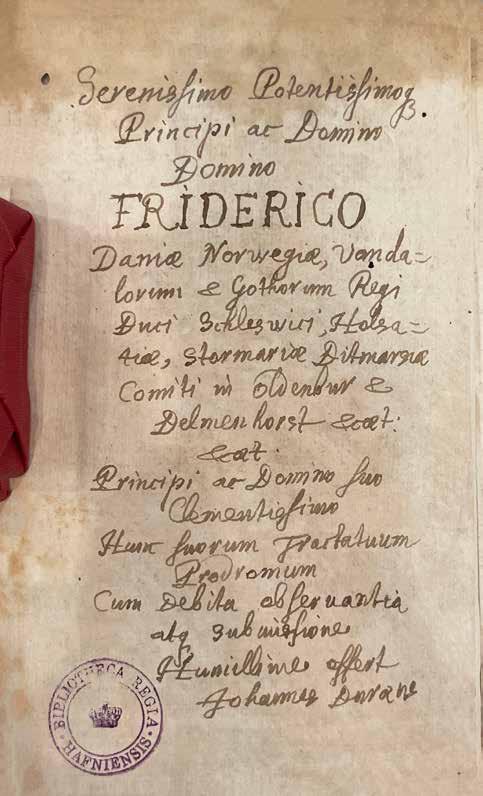 Serenissimo Potentissimoq
Principi ac Domino
Domino
FRIDERICO
Daniæ Norwegiæ, Vanda=
lorum & Gothorum Regi
Duci Schleswici, Holsa=
tiæ, Stormariæ Ditmarsiæ
Comiti in Oldenbur &
Delmenhorst &cæt:
&cæt:
Principi ac Domino suo
Clementissimo
Hunc suorum Tractatuum
Prodromum
Cum debita observantia
atq submissione
Humillime offert
Johannes
BIBLIOTHECA REGIA
HAFNIENSIS